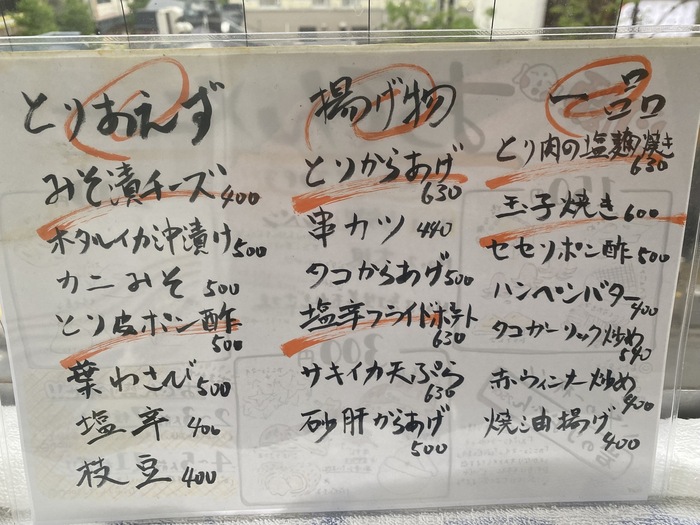 とりあえず
みそ漬チーズ 400
ホタルイカ沖漬け 500
カニみそ 500
とり皮ポン酢 500
葉わさび 500
塩辛 400
枝豆 400
揚げ物
とりからあげ 630
串カツ 440
タコからあげ 500
塩辛フライドポテト 630
サキイカ天ぷら 630
砂肝からあげ 500
一品
とり肉の塩麹焼き 630
玉子焼き 600
セセリポン酢 500
ハンペンバター 400
タコガーリック炒め 540
赤ウィンナー炒め 400
焼油揚げ 400